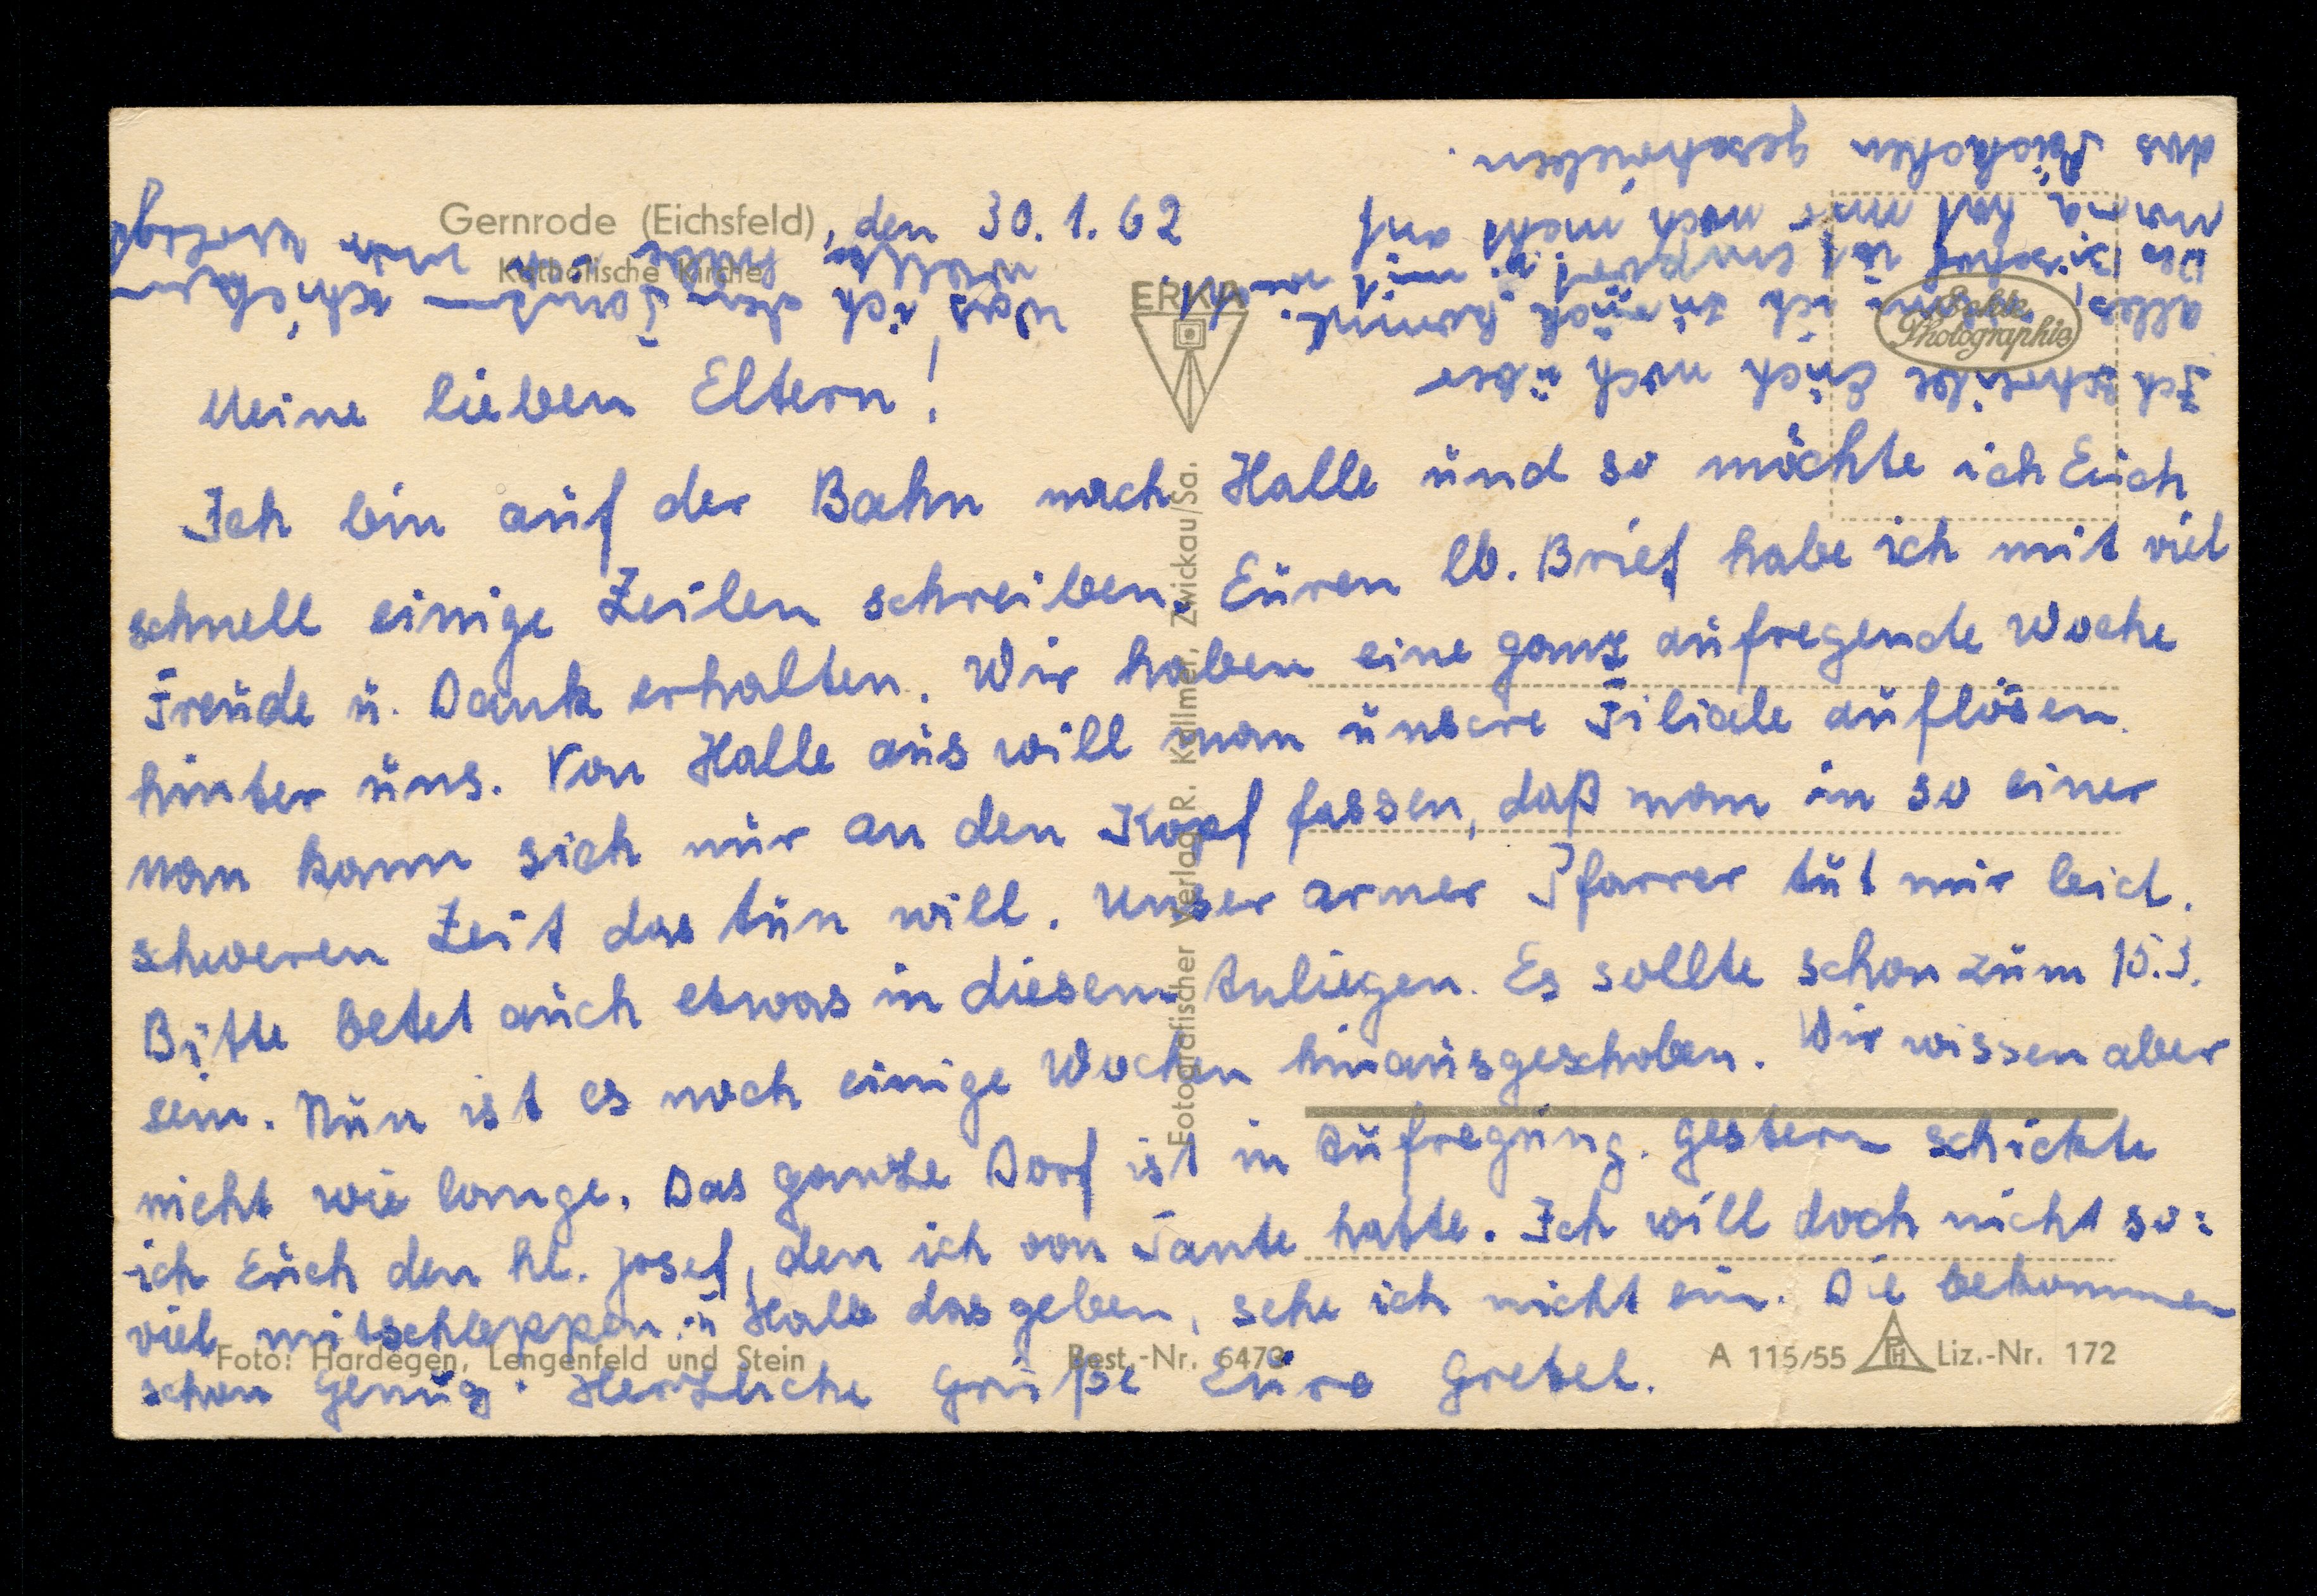 Gernrode (Eichsfeld), den 30.1.62
Katholische Kirche
ERKA
Echte
Photographie
Meine lieben Eltern!
Ich bin auf der Bahn nach Halle und so möchte ich Euch
schnell einige Zeilen schreiben. Euren lb. Brief habe ich mit viel
Freude u. Dank erhalten. Wir haben eine ganz aufregende Woche
hinter uns. Von Halle aus will man unsere Filiale auflösen.
Man kann sich nur an den Kopf fassen, daß man in so einer
schweren Zeit das tun will. Unser armer Pfarrer tut mir leid.
Bitte betet auch etwas in diesem Anliegen. Es sollte schon zum 15.3.
sein. Nun ist es noch einige Wochen hinausgeschoben. Wir wissen aber
nicht wie lange. Das ganze Dorf ist in Aufregung. Gestern schickte
ich Euch den hl. Josef, den ich von Tante hatte. Ich will doch nicht so:
viel mitschleppen u. Halle das geben, sehe ich nicht ein. Die bekommen
schon genug. Herzliche Grüße Eure Gretel.
Ich schreibe Euch noch über
alles, wenn ich zurück komme.
Der ist
mir noch nicht auf
das Päckchen geschrieben.
was ich den ganzen
Fotografischer Verlag R. Kallmer, Zwickau/Sa.
Foto: Hardegen, Lengenfeld und Stein
Best.-Nr. 6473
A 115/55
PH
Liz.-Nr. 172